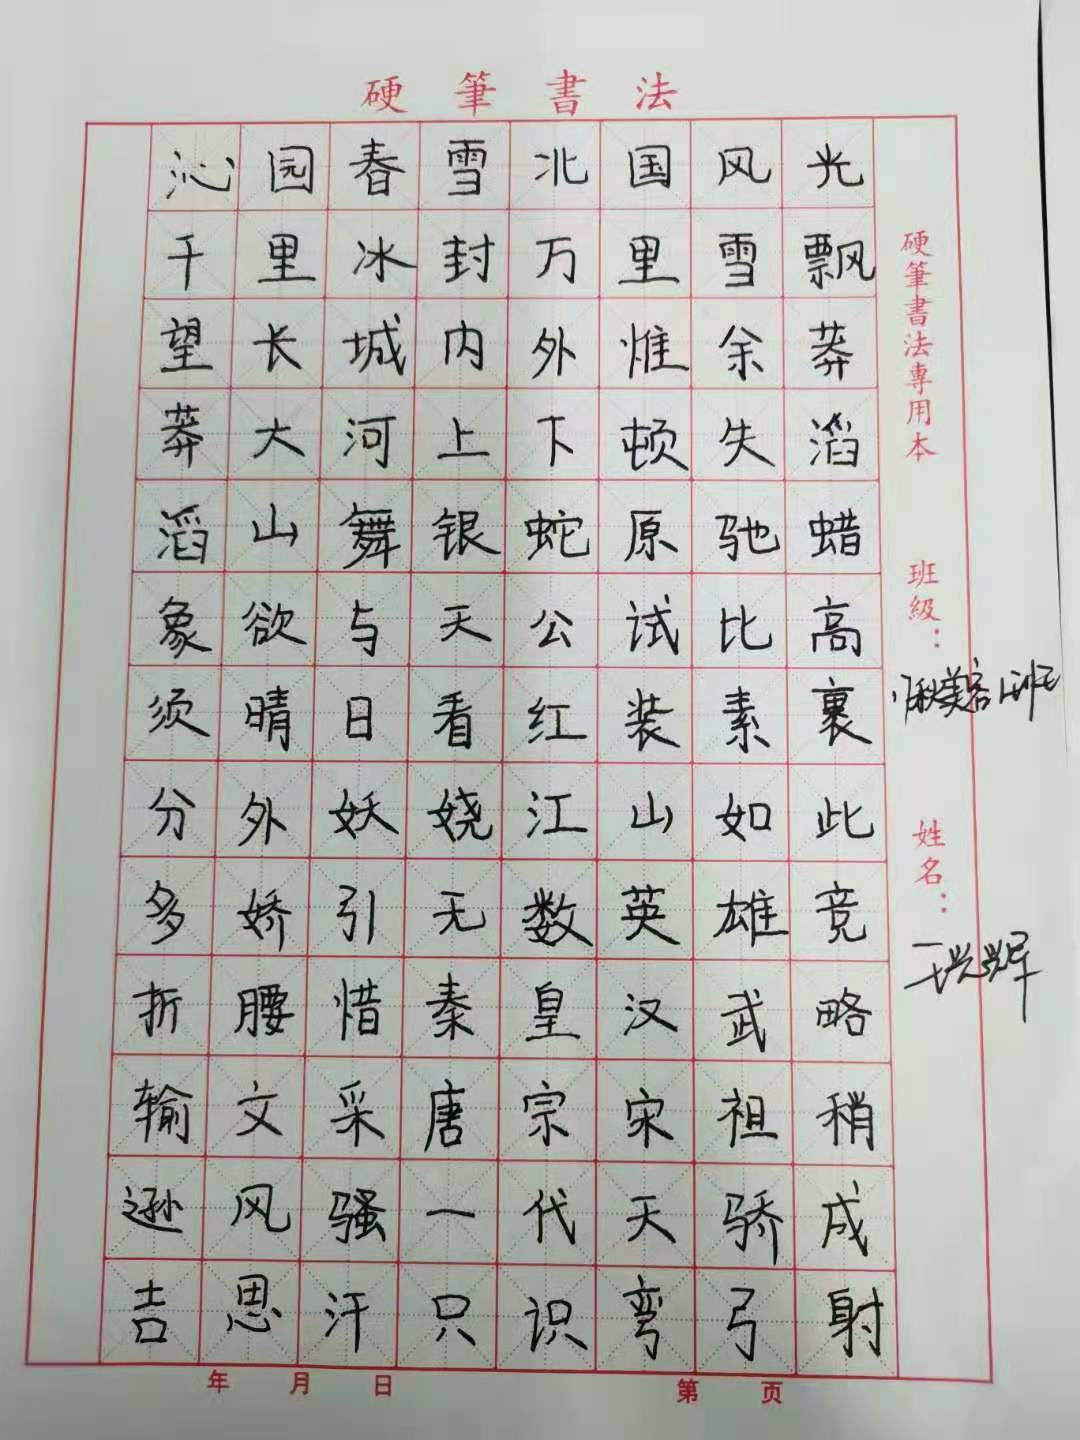 硬筆書法
沁园春雪北国风光
千里冰封万里雪飘
望长城内外惟余莽
莽大河上下顿失滔
滔山舞银蛇原驰蜡
象欲与天公试比高
须晴日看红装素裹
分外妖娆江山如此
多娇引无数英雄竞
折腰惜秦皇汉武略
输文采唐宗宋祖稍
逊风骚一代天骄成
吉思汗只识弯弓射
年 月 日
第 页
硬筆書法專用本
班級：
姓名：